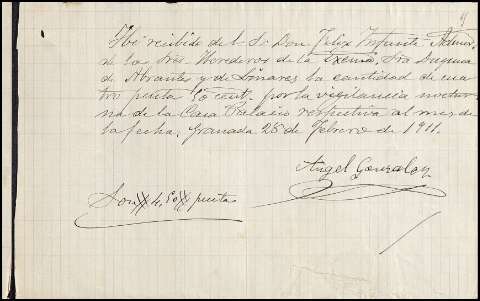 He recibido del Sr. Don Felix Infante Admor.
de los Sres. Herederos de la Excma. Sra. Duquesa
de Abrantes y de Linares la cantidad de cua
tro peseta 50 cent. por la vigilancia noctur
na de la Casa Palacio respectiva al mes de
la fecha. Granada 28 de Febrero de 1911.
Angel Gonzalez
Son # 4,50 # peseta